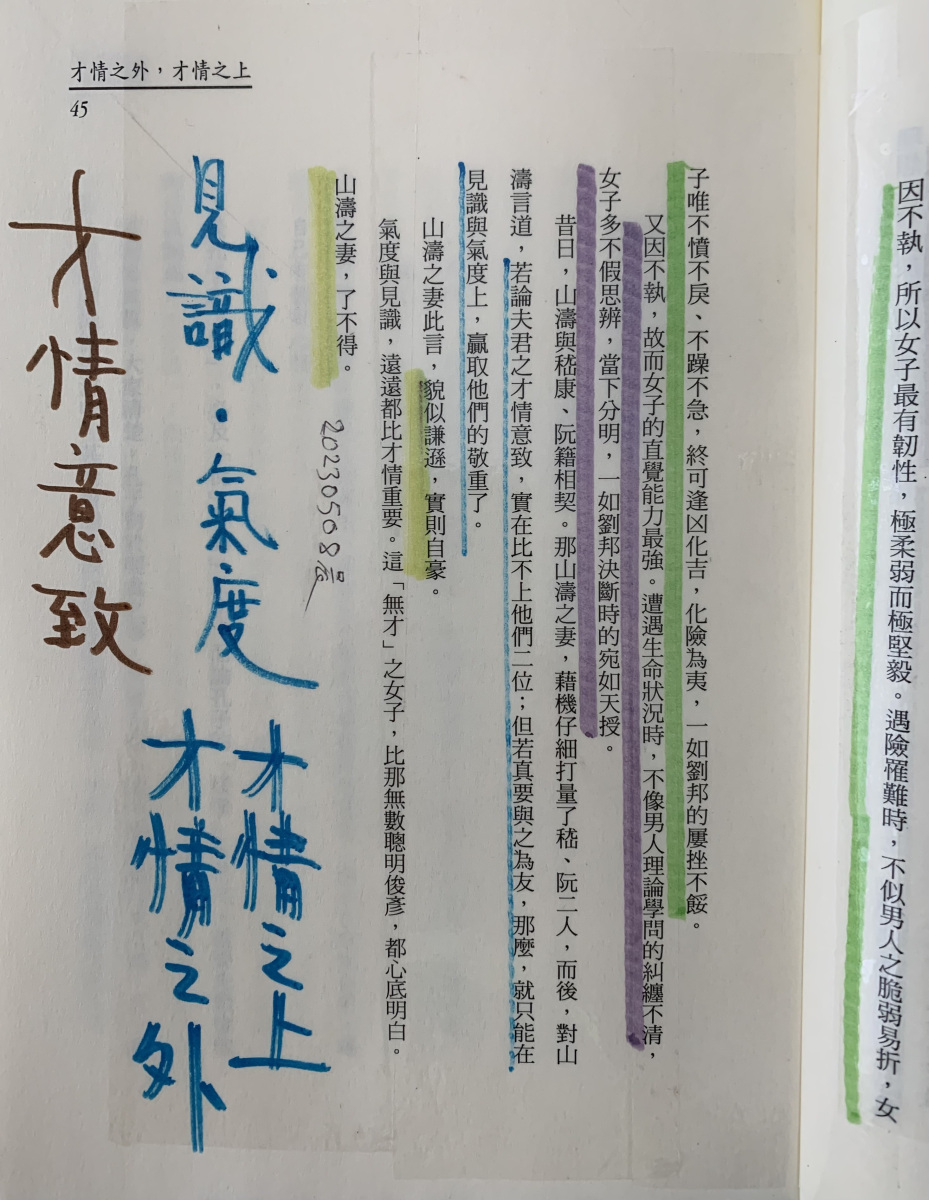 因不執，所以女子最有韌性，極柔弱而極堅毅。遇險罹難時，不似男人之脆弱易折，女
子唯不憤不戾、不躁不急，終可逢凶化吉，化險為夷，一如劉邦的屢挫不餒。
又因不執，故而女子的直覺能力最強。遭遇生命狀況時，不像男人理論學問的糾纏不清，
女子多不假思辨，當下分明，一如劉邦決斷時的宛如天授。
昔日，山濤與嵇康、阮籍相契。那山濤之妻，藉機仔細打量了嵇、阮二人，而後，對山
濤言道，若論夫君之才情意致，實在比不上他們二位；但若真要與之為友，那麼，就只能在
見識與氣度上，贏取他們的敬重了。
山濤之妻此言，貌似謙遜，實則自豪。
氣度與見識，遠遠都比才情重要。這「無才」之女子，比那無數聰明俊彥，都心底明白。
山濤之妻，了不得。
20230508
才情之外，才情之上
45
見識・氣度
才情之上
才情之外
才情意致